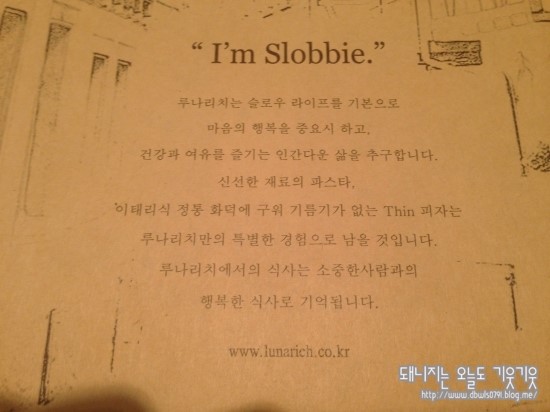 “ I’m Slobbie.”
루나리치는 슬로우 라이프를 기본으로
마음의 행복을 중요시 하고,
건강과 여유를 즐기는 인간다운 삶을 추구합니다.
신선한 재료의 파스타,
이태리식 정통 화덕에 구워 기름기가 없는 Thin 피자는
루나리치만의 특별한 경험으로 남을 것입니다.
루나리치에서의 식사는 소중한사람과의
행복한 식사로 기억됩니다.
www.lunarich.co.kr
돼니지는 오늘도 기웃기웃
http://www.dbwls0791.blog.me/